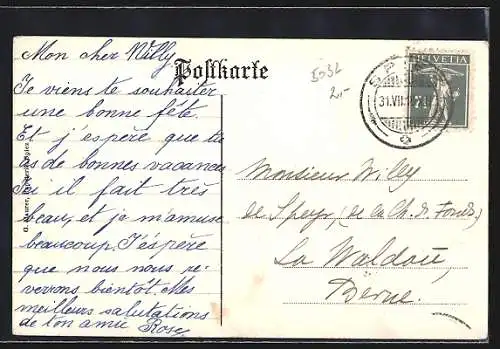 Mon cher Willy
Je viens te souhaiter
une bonne fête.
Et j'espère que tu
as de bonnes vacances
Ici il fait très
beau, et je m'amuse
beaucoup. J'espère
que nous nous re-
verrons bientôt. Mes
meilleurs salutations
de ton amie Rose
Postkarte
HELVETIA
31.VII.
Monsieur Willy
de Speyr, (de la Ch. d. Fonds)
La Waldau,
Berne.